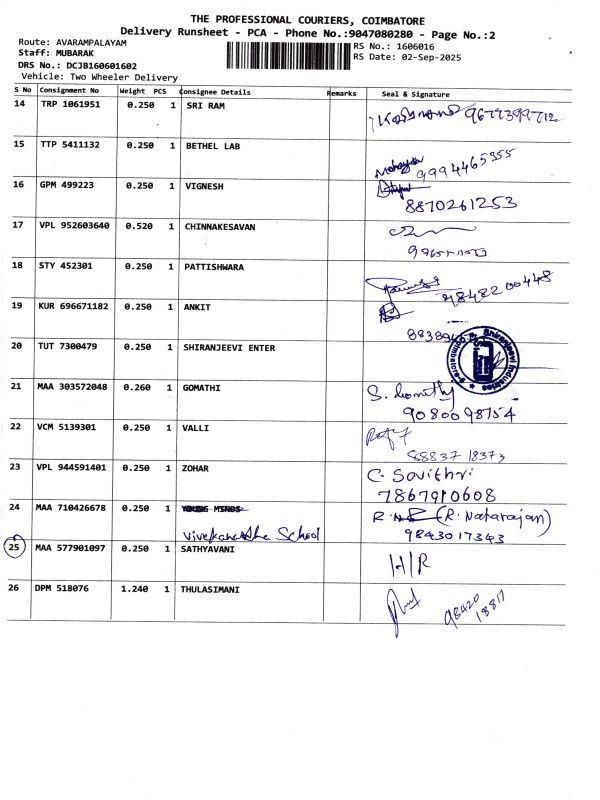 THE PROFESSIONAL COURIERS, COIMBATORE
Delivery Runsheet - PCA - Phone No.:9047080280 - Page No.:2
Route: AVARAMPALAYAM
Staff: MUBARAK
DRS No.: DCJB160601602
Vehicle: Two Wheeler Delivery
RS No.: 1606016
RS Date: 02-Sep-2025
S No Consignment No Weight PCS Consignee Details Remarks Seal & Signature
14 TRP 1061951 0.250 1 SRI RAM
15 TTP 5411132 0.250 1 BETHEL LAB 9994465355
16 GPM 499223 0.250 1 VIGNESH
8870261253
17 VPL 952603640 0.520 1 CHINNAKESAVAN
18 STY 452301 0.250 1 PATTISHWARA 98422 00448
19 KUR 696671182 0.250 1 ANKIT
20 TUT 7300479 0.250 1 SHIRANJEEVI ENTER Shiranjeevi Industries
21 MAA 303572048 0.260 1 GOMATHI S. Gomathy
9080098754
22 VCM 5139301 0.250 1 VALLI
23 VPL 944591401 0.250 1 ZOHAR C. Savithri
7867910608
24 MAA 710426678 0.250 1 YOUNG MINDS (R. Natarajan)
School 9843017343
25 MAA 577901097 0.250 1 SATHYAVANI H/R
26 DPM 518076 1.240 1 THULASIMANI 98420
18817